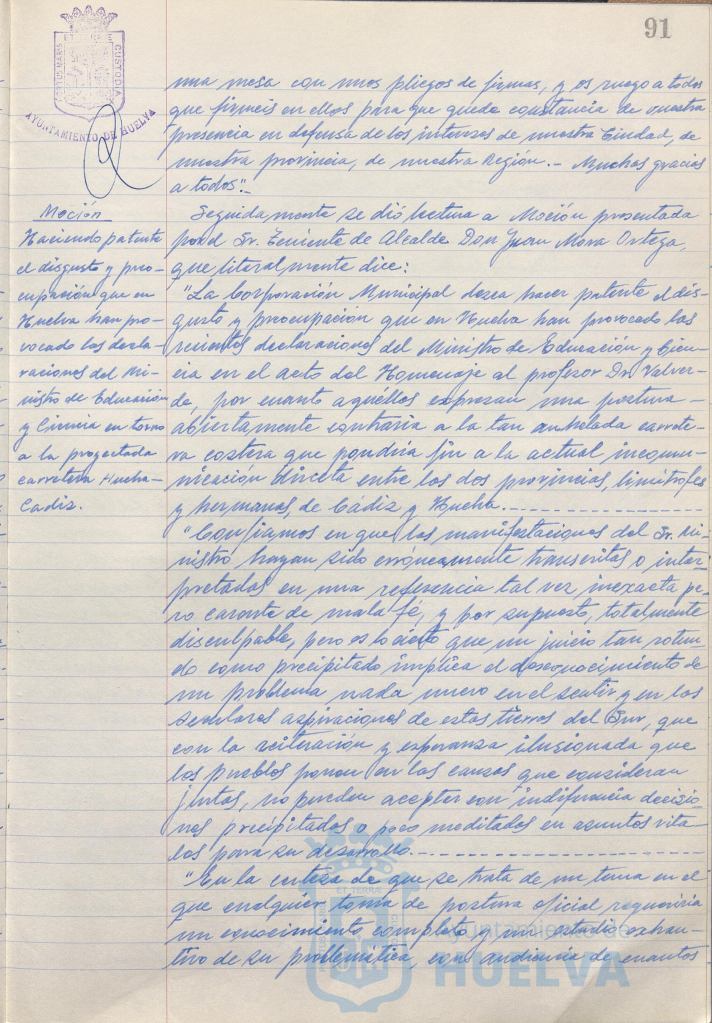 91
PORTUS MARIS ET TERRAE CUSTODIA
AYUNTAMIENTO DE HUELVA
una mesa con unos pliegos de firmas, y os ruego a todos
que firmeis en ellos para que quede constancia de vuestra
presencia en defensa de los intereses de nuestra Ciudad, de
nuestra provincia, de nuestra Región.- Muchas gracias
a todos".-
Moción
Haciendo patente
el disgusto y preo-
cupación que en
Huelva han pro-
vocado las decla-
raciones del Mi-
nistro de Educación
y Ciencia en torno
a la proyectada
carretera Huelva-
Cadiz.
Seguidamente se dió lectura a Moción presentada
por el Sr. Teniente de Alcalde Don Juan Mora Ortega,
que literalmente dice:
"La Corporación Municipal desea hacer patente el dis-
gusto y preocupación que en Huelva han provocado las
recientes declaraciones del Ministro de Educación y Cien-
cia en el acto del Homenaje al profesor Dr. Valver-
de, por cuanto aquellos expresan una postura -
abiertamente contraria a la tan anhelada carrete-
ra costera que pondría fin a la actual incomu-
nicación directa entre las dos provincias, limítrofes
y hermanas, de Cádiz y Huelva.-----------
"Confiamos en que las manifestaciones del Sr. Mi-
nistro hayan sido erróneamente transcritas o inter-
pretadas en una referencia tal vez inexacta pe-
ro carente de mala fé, y por supuesto, totalmente
disculpable, pero es lo cierto que un juicio tan rotun-
do como precipitado implica el desconocimiento de
un problema nada nuevo en el sentir y en las
seculares aspiraciones de estas tierras del Sur, que
con la reiteración y esperanza ilusionada que
los pueblos ponen en las causas que consideran
justas, no pueden aceptar con indiferencia decisio-
nes precipitadas o poco meditadas en asuntos vita-
les para su desarrollo.-----------
"En la certeza de que se trata de un tema en el
que cualquier toma de postura oficial requeriría
un conocimiento completo y un estudio exhaus-
tivo de su problemática, con audiencia de cuantos
Ayuntamiento de
HUELVA